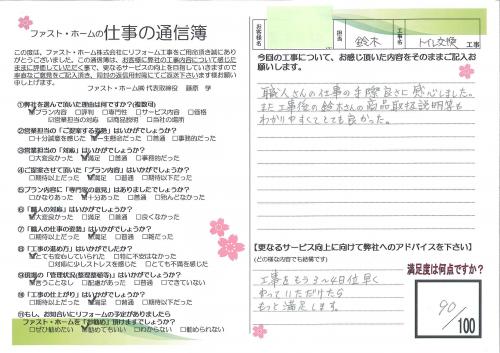 ファスト・ホームの仕事の通信簿
この度は、ファスト・ホーム株式会社にリフォーム工事をご用命頂き誠にあり
がとうございました。この通信簿は、お客様に弊社の工事内容について感じた
ままに評価していただく事で、更なるサービスの向上を目指していますので
率直なご意見をご記入頂き、同封の返信用封筒にてご返送下さいます様お願い
申し上げます。
ファスト・ホーム㈱ 代表取締役 藤原 学
①弊社を選んで頂いた理由は何ですか?(複数可)
プラン内容 □評判 □専門性 □サービス内容 □価格
営業担当の対応 □商品説明 □当社の信用
②営業担当の「ご提案する姿勢」はいかがでしょうか?
□十分誠意を感じた 一生懸命だった □普通 □事務的だった
③営業担当の「対応」はいかがでしょうか?
□大変良かった 満足 □普通 □事務的だった
④ご提案させて頂いた「プラン内容」はいかがでしょうか?
□期待以上だった 満足 □普通 □期待以下だった
⑤プラン内容に「専門家の意見」はありましたでしょうか?
□かなりあった 十分あった □普通 □殆んどなかった
⑥「職人の対応」はいかがでしょうか?
大変良かった □満足 □普通 □良くなかった
⑦「職人の仕事の姿勢」はいかがでしょうか?
□期待以上だった 満足 □普通 □雑だった
⑧「工事の進め方」はいかがでしたか?
とても安心していられた □特に不安はなかった
□対応に少しストレスを感じた □とても不満を感じた
⑨現場の「管理状況(整理整頓等)」はいかがでしょうか?
言うことなし □配慮があった □普通 □雑だった
⑩「工事の仕上がり」はいかがでしょうか?
□期待以上だった 満足 □普通 □期待以下だった
⑪もし、お知り合いにリフォームの予定がありましたら
ファスト・ホームを「お勧め」頂けますでしょうか?
□ぜひ勧めたい 勧めてもいい □わからない □勧められない
お客様名
担当
鈴木
工事名
トイレ交換 工事
今回の工事について、お感じ頂いた内容をそのままご記入お
願いします。
職人さんの仕事の手際良さに感心しました。
また工事後の鈴木さんの商品取扱説明等も
わかりやすくてとても良かった。
【更なるサービス向上に向けて弊社へのアドバイスを下さい】
(どの様な内容でも結構です)
工事をもう3〜4日位早く
やっていただけたら
もっと満足します。
満足度は何点ですか?
90/100